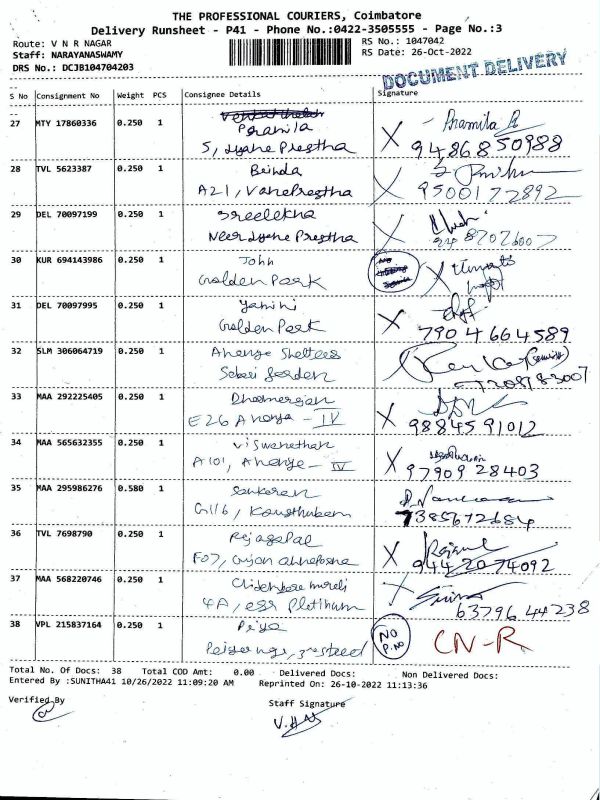 THE PROFESSIONAL COURIERS, Coimbatore
Delivery Runsheet - P41 - Phone No.:0422-3505555 - Page No.:3
Route: V N R NAGAR
RS No.: 1047042
Staff: NARAYANASWAMY
RS Date: 26-Oct-2022
DRS No.: DCJB104704203
DOCUMENT DELIVERY
S No Consignment No Weight PCS Consignee Details Signature
27 MTY 17860336 0.250 1 Pramila Pramila
5, Dyane Prestha 94868 50988
28 TVL 5623387 0.250 1 Brinda
A21, Vane Prestha 9500172892
29 DEL 70097199 0.250 1 Sreelekha
Neer Dyane Prestha
30 KUR 694143986 0.250 1 John
Golden Park
31 DEL 70097995 0.250 1 Yamini
Golden Park 7904664589
32 SLM 306064719 0.250 1 Ananya Shelters
Sabari Garden
33 MAA 292225405 0.250 1 Dharmarajan
E26 Ananya - IV 98845 91012
34 MAA 565632355 0.250 1 Viswanathan
A101, Ananya - IV 97909 28403
35 MAA 295986276 0.580 1 Sankaran
G116, Kousthubam 7385672684
36 TVL 7698790 0.250 1 Rajagopal
F07, 944 2074092
37 MAA 568220746 0.250 1
4A, ESR Platinum 63796 44238
38 VPL 215837164 0.250 1 Priya NO P.NO CN-R
3rd Street
Total No. Of Docs: 38 Total COD Amt: 0.00 Delivered Docs: Non Delivered Docs:
Entered By :SUNITHA41 10/26/2022 11:09:20 AM Reprinted On: 26-10-2022 11:13:36
Verified By Staff Signature